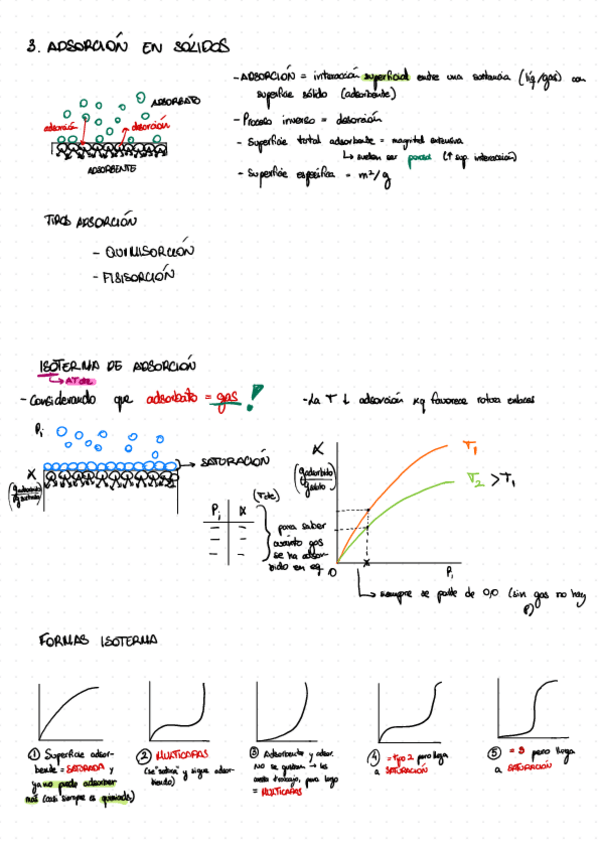 3. ADSORCIÓN EN SÓLIDOS
- ADSORCIÓN = interacción superficial entre una sustancia (líq/gas) con
superficie sólido (adsorbente)
- Proceso inverso = desorción
- Superficie total adsorbente = magnitud extensiva
↳ suelen ser porosos (↑ sup. interacción)
- Superficie específica = m²/g
ADSORBATO
adsorción
desorción
ADSORBENTE
TIPOS ADSORCIÓN
- QUIMISORCIÓN
- FISISORCIÓN
ISOTERMA DE ADSORCIÓN
↳ A T cte
- Considerando que adsorbato = gas!
- La T ↓ adsorción xq favorece rotura enlaces
Pi
SATURACIÓN
X
Pi X (T cte)
para saber
cuánto gas
se ha adsor-
bido en eq
X
T1
T2 > T1
0
x
Pi
↳ siempre se parte de 0,0 (sin gas no hay
P)
FORMAS ISOTERMA
① Superficie adsor-
bente = SATURADA y
ya no puede adsorber
más (casi siempre es quimiads)
② MULTICAPAS
(se "satura" y sigue adsor-
biendo)
③ Adsorbente y adsor.
NO se gustan → les
cuesta trabajo, pero luego
= MULTICAPAS
④ = tipo 2 pero llega
a SATURACIÓN
⑤ = 3 pero llega
a SATURACIÓN